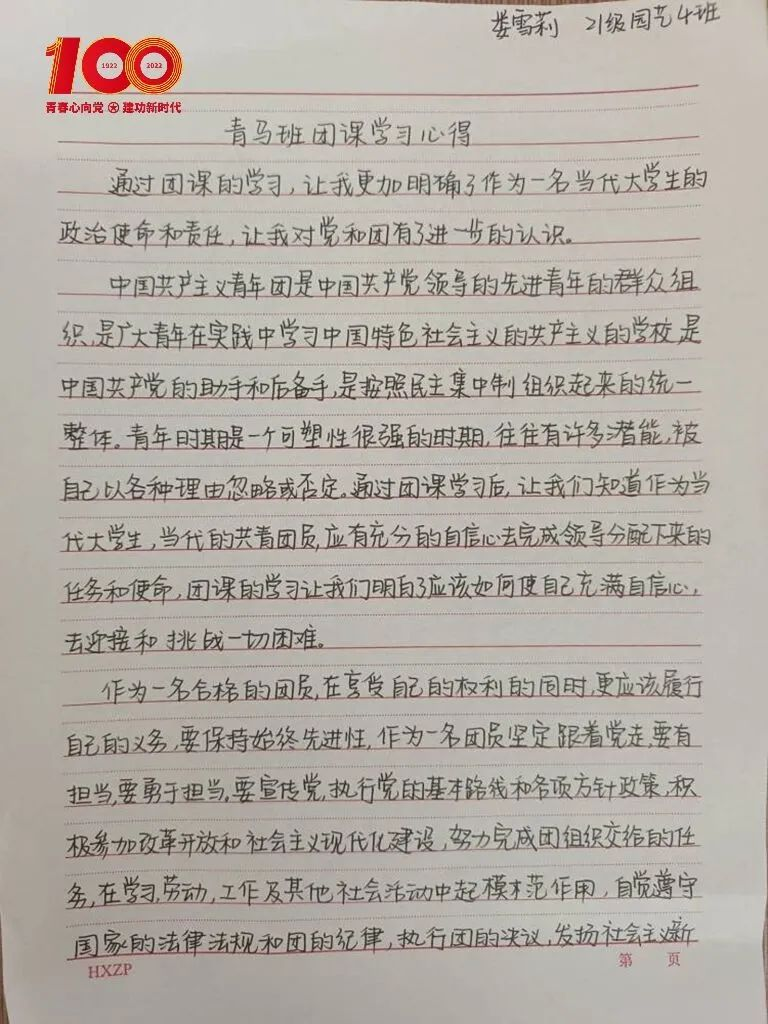 娄雪莉 21级园艺4班
100
1922 2022
青春心向党 建功新时代
青马班团课学习心得
通过团课的学习,让我更加明确了作为一名当代大学生的
政治使命和责任,让我对党和团有了进一步的认识。
中国共产主义青年团是中国共产党领导的先进青年的群众组
织,是广大青年在实践中学习中国特色社会主义的共产主义的学校,是
中国共产党的助手和后备手,是按照民主集中制组织起来的统一
整体。青年时期是一个可塑性很强的时期,往往有许多潜能,被
自己以各种理由忽略或否定。通过团课学习后,让我们知道作为当
代大学生,当代的共青团员,应有充分的自信心去完成领导分配下来的
任务和使命,团课的学习让我们明白了应该如何使自己充满自信心,
去迎接和挑战一切困难。
作为一名合格的团员,在享受自己的权利的同时,更应该履行
自己的义务,要保持始终先进性,作为一名团员坚定跟着党走,要有
担当,要勇于担当。要宣传党,执行党的基本路线和各项方针政策,积
极参加改革开放和社会主义现代化建设,努力完成团组织交给的任
务,在学习,劳动,工作及其他社会活动中起模木范作用,自觉遵守
国家的法律法规和团的纪律,执行团的决议,发扬社会主义新
HXZP 第 页